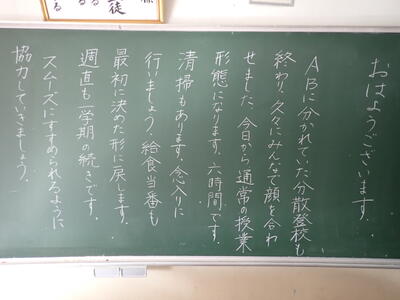 おはようございます。
ABに分かれていた分散登校も
終わり、久々にみんなで顔を合わ
せました。今日から通常の授業
形態になります。六時間です。
清掃もあります。念入りに
行いましょう。給食当番も
最初に決めた形に戻します。
週直も一学期の続きです。
スムーズにすすめられるように
協力していきましょう。
徒
る
る